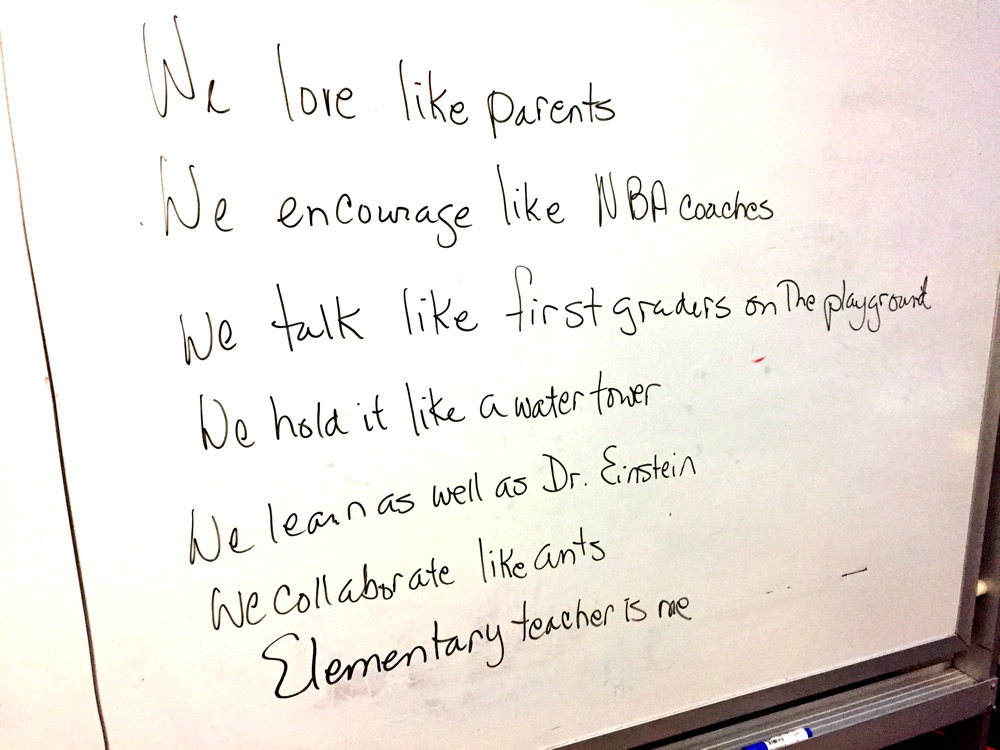 We love like parents
We encourage like NBA coaches
We talk like first graders on The playground
We hold it like a water tower
We learn as well as Dr. Einstein
We collaborate like ants
Elementary teacher is me